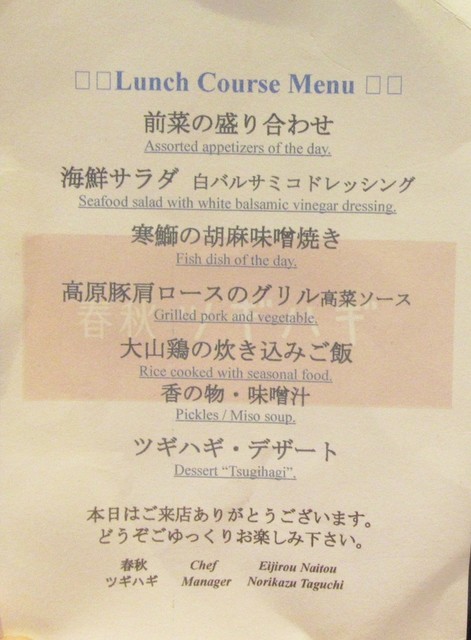 □□Lunch Course Menu □□
前菜の盛り合わせ
Assorted appetizers of the day.
海鮮サラダ 白バルサミコドレッシング
Seafood salad with white balsamic vinegar dressing.
寒鰤の胡麻味噌焼き
Fish dish of the day.
高原豚肩ロースのグリル高菜ソース
Grilled pork and vegetable.
春秋 ツギハギ
大山鶏の炊き込みご飯
Rice cooked with seasonal food.
香の物・味噌汁
Pickles / Miso soup.
ツギハギ・デザート
Dessert “Tsugihagi”.
本日はご来店ありがとうございます。
どうぞごゆっくりお楽しみ下さい。
春秋 Chef Eijirou Naitou
ツギハギ Manager Norikazu Taguchi